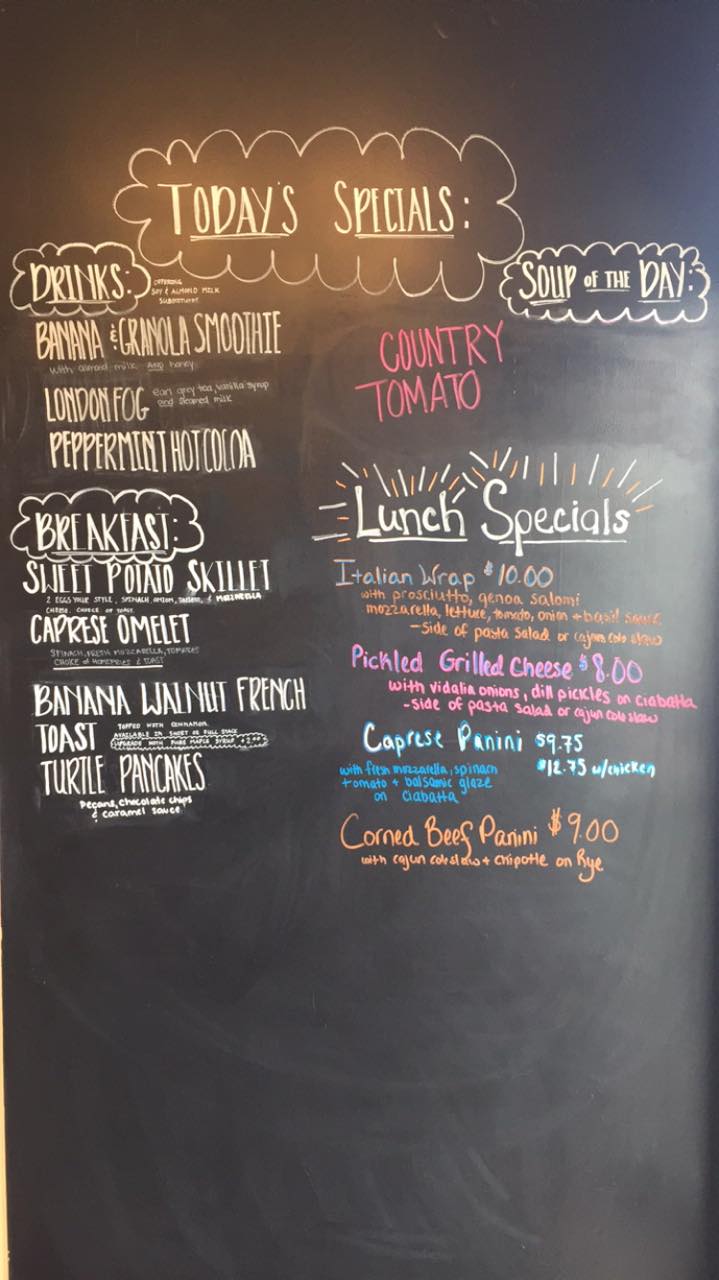 TODAY'S SPECIALS:
DRINKS:
OFFERING
SOY & ALMOND MILK
SUBSTITUTIONS
BANANA & GRANOLA SMOOTHIE
with almond milk and honey
LONDON FOG
earl grey tea, vanilla syrup
and steamed milk
PEPPERMINT HOT COCOA
BREAKFAST:
SWEET POTATO SKILLET
2 EGGS YOUR STYLE, SPINACH, ONION, & MOZZARELLA
CHEESE. CHOICE OF TOAST.
CAPRESE OMELET
SPINACH, FRESH MOZZARELLA, TOMATOES
CHOICE OF HOMEFRIES & TOAST
BANANA WALNUT FRENCH
TOAST
TOPPED WITH CINNAMON
AVAILABLE IN SHORT OR FULL STACK
UPGRADE WITH PURE MAPLE SYRUP +2.00
TURTLE PANCAKES
Pecans, chocolate chips
& caramel sauce
SOUP OF THE DAY:
COUNTRY
TOMATO
Lunch Specials
Italian Wrap $10.00
with prosciutto, genoa salami
mozzarella, lettuce, tomato, onion + basil
-side of pasta salad or cajun cole slaw
Pickled Grilled Cheese $8.00
with vidalia onions, dill pickles on ciabatta
-side of pasta salad or cajun coleslaw
Caprese Panini $9.75
$12.75 w/chicken
with fresh mozzarella, spinach
tomato + balsamic glaze
on ciabatta
Corned Beef Panini $9.00
with cajun coleslaw + chipotle on Rye